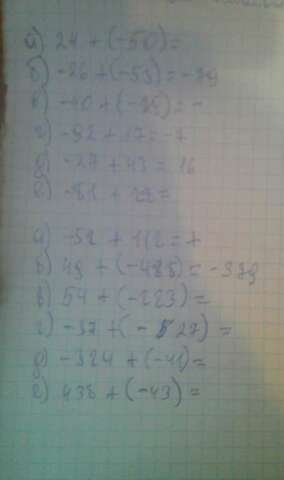 а) 24 + (-50) =
б) -26 + (-53) = -79
в) -40 + (-35) = -
г) -92 + 17 = -7
д) -27 + 43 = 16
е) -81 + 22 =
а) -52 + 112 = +
б) 49 + (-488) = -379
в) 54 + (-223) =
г) -37 + (-527) =
д) -324 + (-41) =
е) 438 + (-43) =